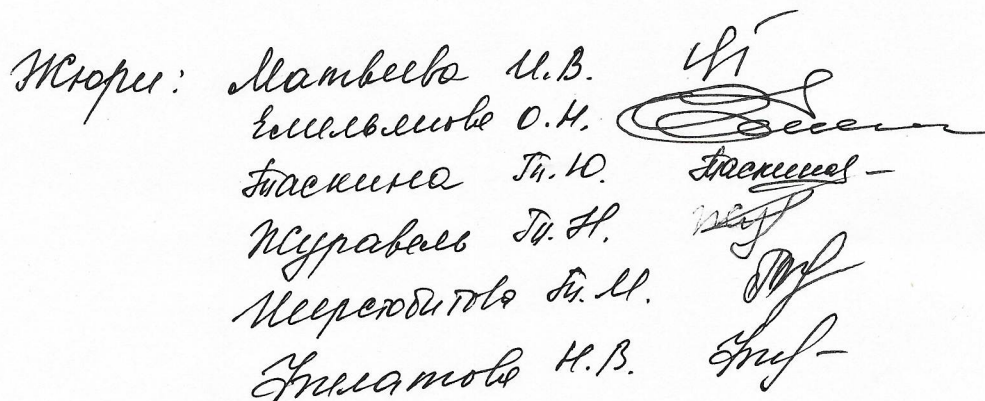 Жюри: Матвеева И.В.
Емельянова О.Н.
Таскина Т.Ю. Таскина
Журавель Т.Н.
Шерстобитова Т.М.
Н.В.